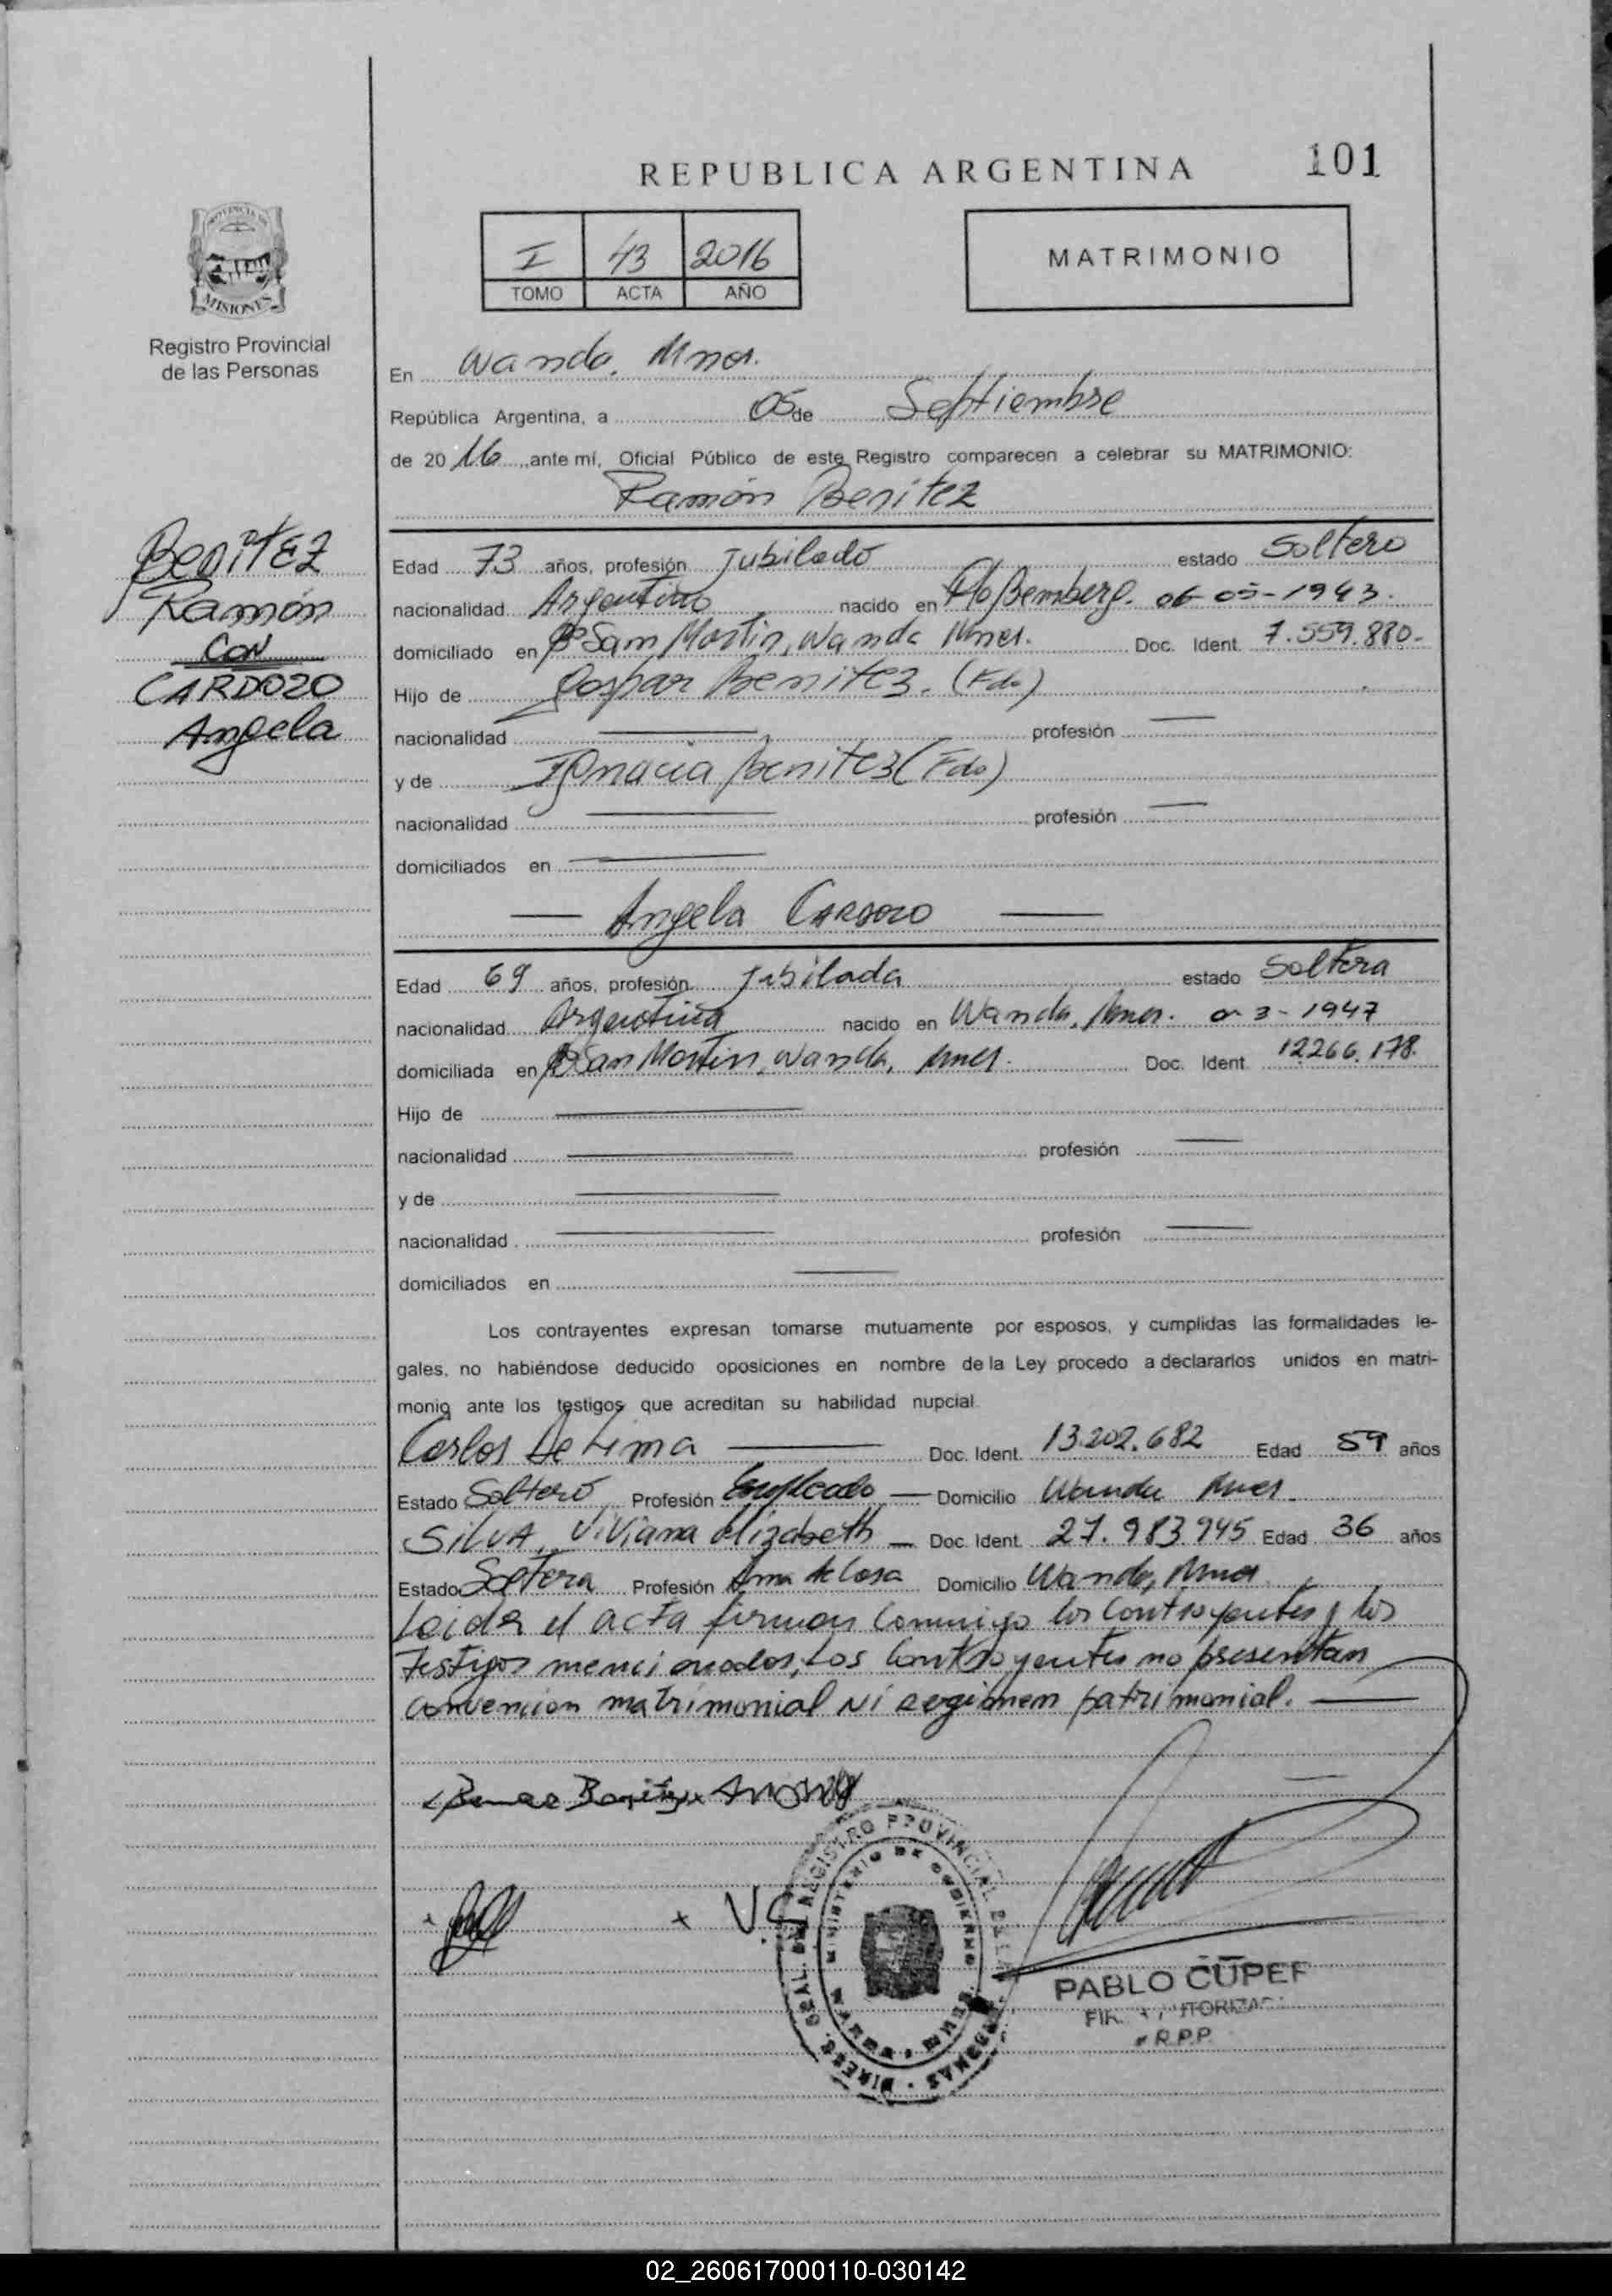 REPUBLICA ARGENTINA
101
PROVINCIA DE
MISIONES
Registro Provincial
de las Personas
I 43 2016
TOMO ACTA AÑO
MATRIMONIO
En Wanda, Mnes.
República Argentina, a 05 de Septiembre
de 2016, ante mí, Oficial Público de este Registro comparecen a celebrar su MATRIMONIO:
Ramón Benitez
BENITEZ
Ramón
CON
CARDOZO
Angela
Edad 73 años, profesión Jubilado estado Soltero
nacionalidad Argentino nacido en Pto Bemberg. 06-05-1943.
domiciliado en Bº San Martin, Wanda Mnes. Doc. Ident. 7.559.880-
Hijo de Gaspar Benitez. (Fdo)
nacionalidad profesión
y de Ignacia Benitez (Fdo)
nacionalidad profesión
domiciliados en
Angela CARDOZO
Edad 69 años, profesión Jubilada estado Soltera
nacionalidad Argentina nacido en Wanda, Mnes. 3-1947
domiciliada en Bº San Martin, Wanda, Mnes. Doc. Ident. 12.266.178.
Hijo de
nacionalidad profesión
y de
nacionalidad profesión
domiciliados en
Los contrayentes expresan tomarse mutuamente por esposos, y cumplidas las formalidades le-
gales, no habiéndose deducido oposiciones en nombre de la Ley procedo a declararlos unidos en matri-
monio ante los testigos que acreditan su habilidad nupcial.
Carlos De Lima Doc. Ident. 13.202.682 Edad 59 años
Estado Soltero Profesión Empleado Domicilio Wanda Mnes
SILVA, Viviana Elizabeth Doc. Ident. 27.983.945 Edad 36 años
Estado Soltera Profesión Ama de Casa Domicilio Wanda, Mnes
Leida el acta firman conmigo los contrayentes y los
testigos mencionados; Los contrayentes no presentan
convencion matrimonial Ni regimen patrimonial.
PABLO CUPEF
R.P.P.
02_260617000110-030142